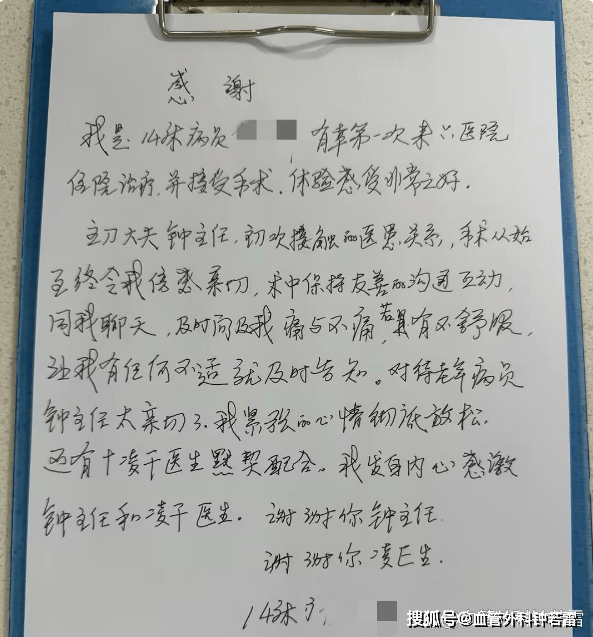 感谢
我是14床病员 有幸第一次来 医院
住院治疗.并接受手术.体验感受非常之好.
主刀大夫钟主任.初次接触的医患关系,手术从始
至终令我倍感亲切,术中保持友善的沟通互动,
同我聊天,及时问及我痛与不痛,若具有不舒服,
让我有任何不适就及时告知。对待老年病员
钟主任太亲切了.我紧张的心情彻底放松.
还有 凌干医生默契配合。我发自内心感激
钟主任和凌干医生。谢谢你钟主任.
谢谢你凌医生.
14床
搜狐号@血管外科钟若雷